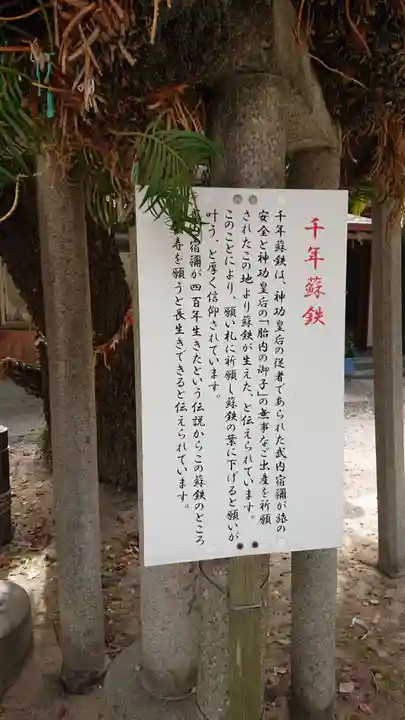 千年蘇鉄
千年蘇鉄は、神功皇后の従者であられた武内宿禰が旅の
安全と神功皇后の「胎内の御子」の無事なご出産を祈願
されたこの地より蘇鉄が生えた、と伝えられています。
このことにより、願い札に祈願し蘇鉄の葉に下げると願いが
叶う、と厚く信仰されています。
宿禰が四百年生きたという伝説からこの蘇鉄のところ
寿を願うと長生きできると伝えられています。